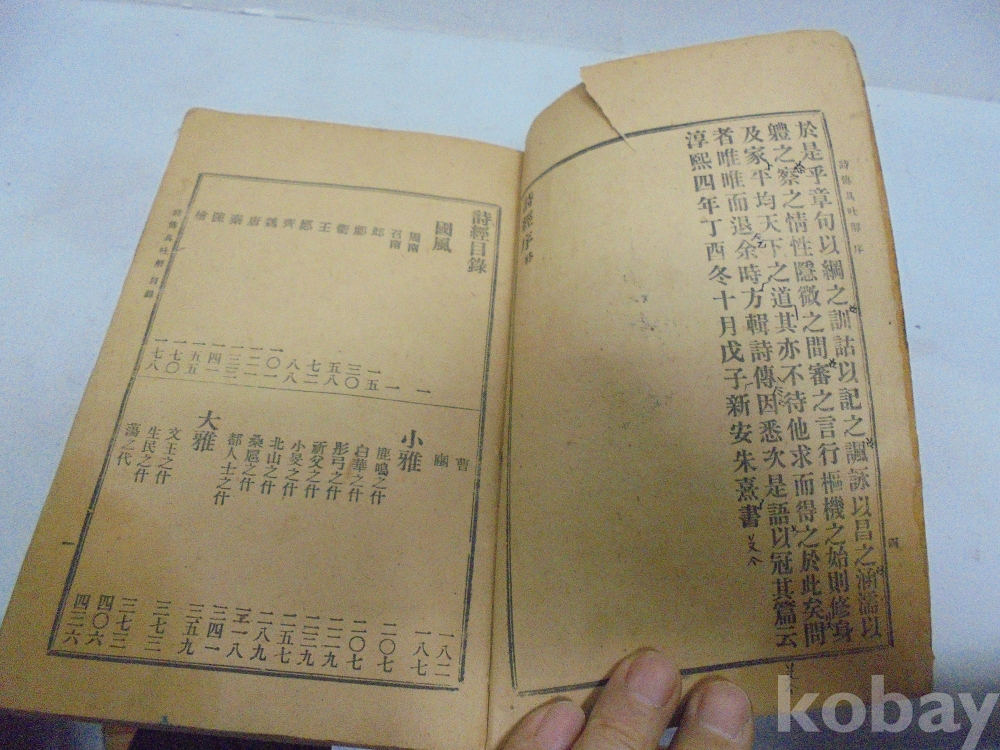 詩傳具吐解 序
四
於是乎章句以綱之訓詁以記之諷詠以昌之涵濡以
體之察之情性隱微之間審之言行樞機之始則修身
及家平均天下之道其亦不待他求而得之於此矣問
者唯唯而退余時方輯詩傳因悉次是語以冠其篇云
淳熙四年丁酉冬十月戊子新安朱熹書
詩經序 終
詩經目錄
國風 一
周南 一
召南 一五
邶 三〇
鄘 五八
衞 七二
王 八八
鄭 一〇一
齊 一二一
魏 一三三
唐 一四一
秦 一五五
陳 一七〇
檜 一七八
曹 一八二
豳 一八七
小雅
鹿鳴之什 二〇〇
白華之什 二〇七
彤弓之什 二二九
祈父之什 二三九
小旻之什 二五七
北山之什 二八九
桑扈之什 三一八
都人士之什 三四一
大雅 三五九
文王之什 三七三
生民之什 三七三
蕩之代 四〇六
四三六
詩傳具吐解 目錄
一
kobay